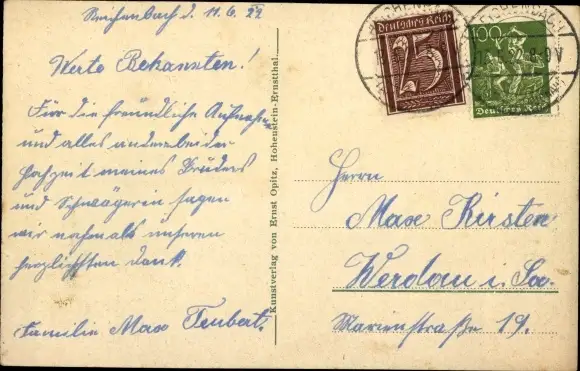 Reichenbach d. 11.6.22
Werte Bekannten!
Für die freundliche Aufnahme
und alles andere bei der
Hochzeit meines Bruders
und Schwägerin sagen
wir nochmals unseren
herzlichsten Dank.
Familie Max Teubert.
Kunstverlag von Ernst Opitz, Hohenstein-Ernstthal.
Deutsches Reich
25
100
Deutsches Reich
8-9V
Herrn
Max Kirsten
Werdau i. Sa.
Marienstraße 19.